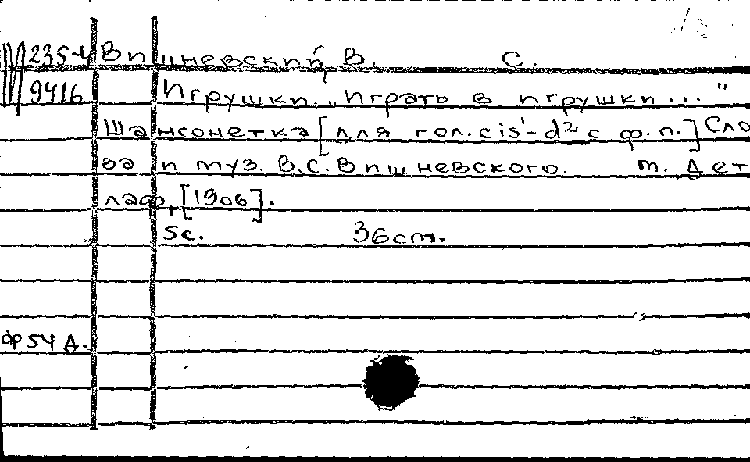 235-4 Вишневский, В. С.
9416 Игрушки. "Играть в игрушки..."
Шансонетка [для гол. cis¹-d² с ф.п.] Сло
ва и муз. В.С.Вишневского. т. Дет
лаф, [1906].
5с. 36cm.
фр 54 Д.